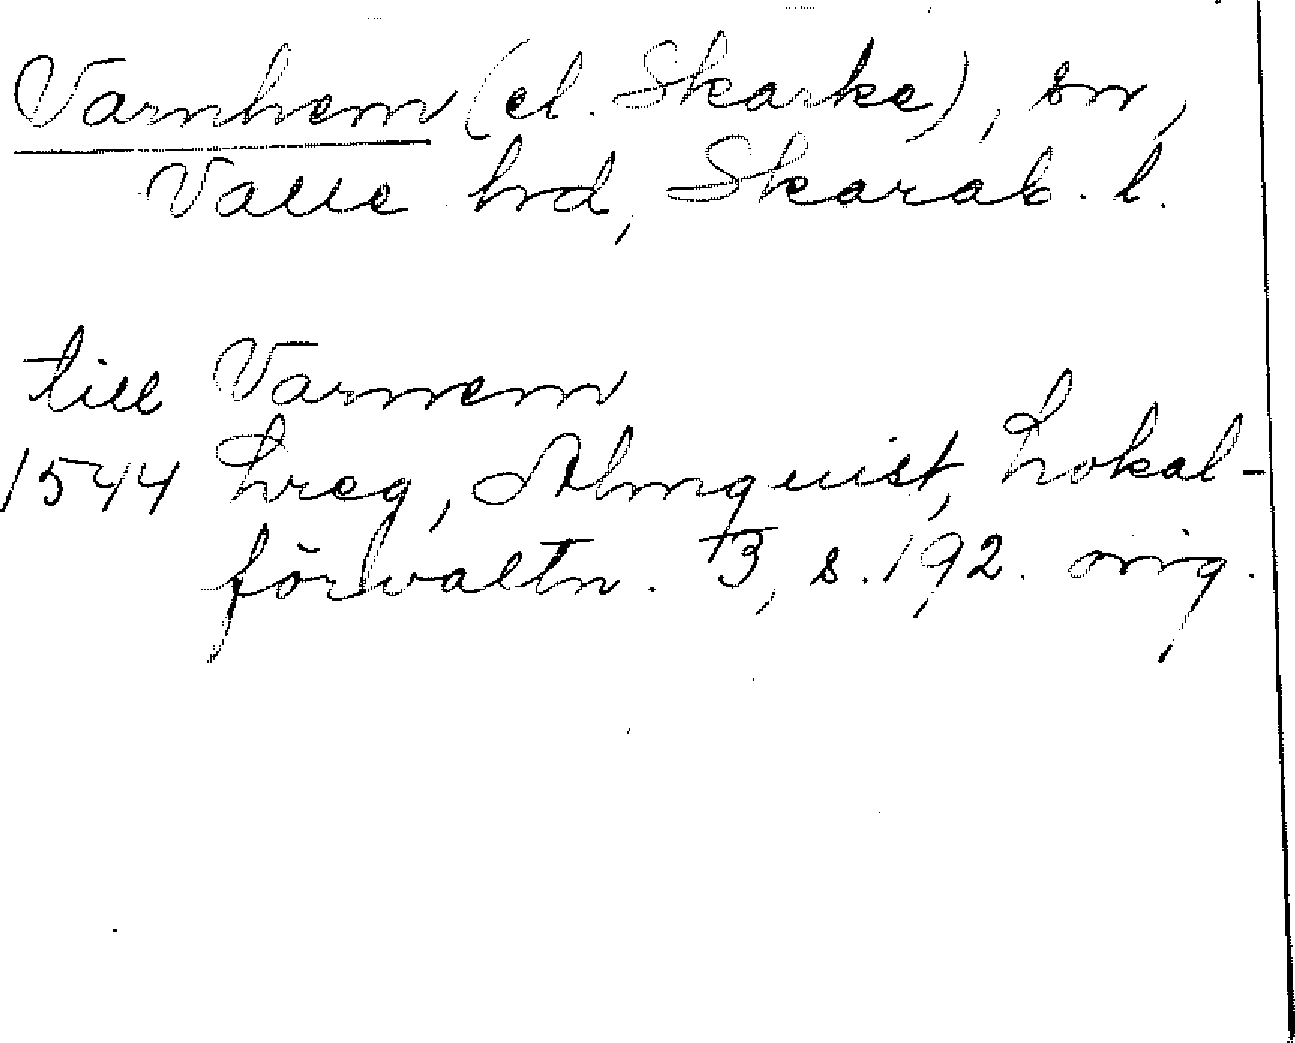 Varnhem (el. Skarke), sn,
Valle hd, Skarab. l.
till Varnem
1544 Lreg, Almquist, Lokal-
förvaltn. 3, s. 192. orig.